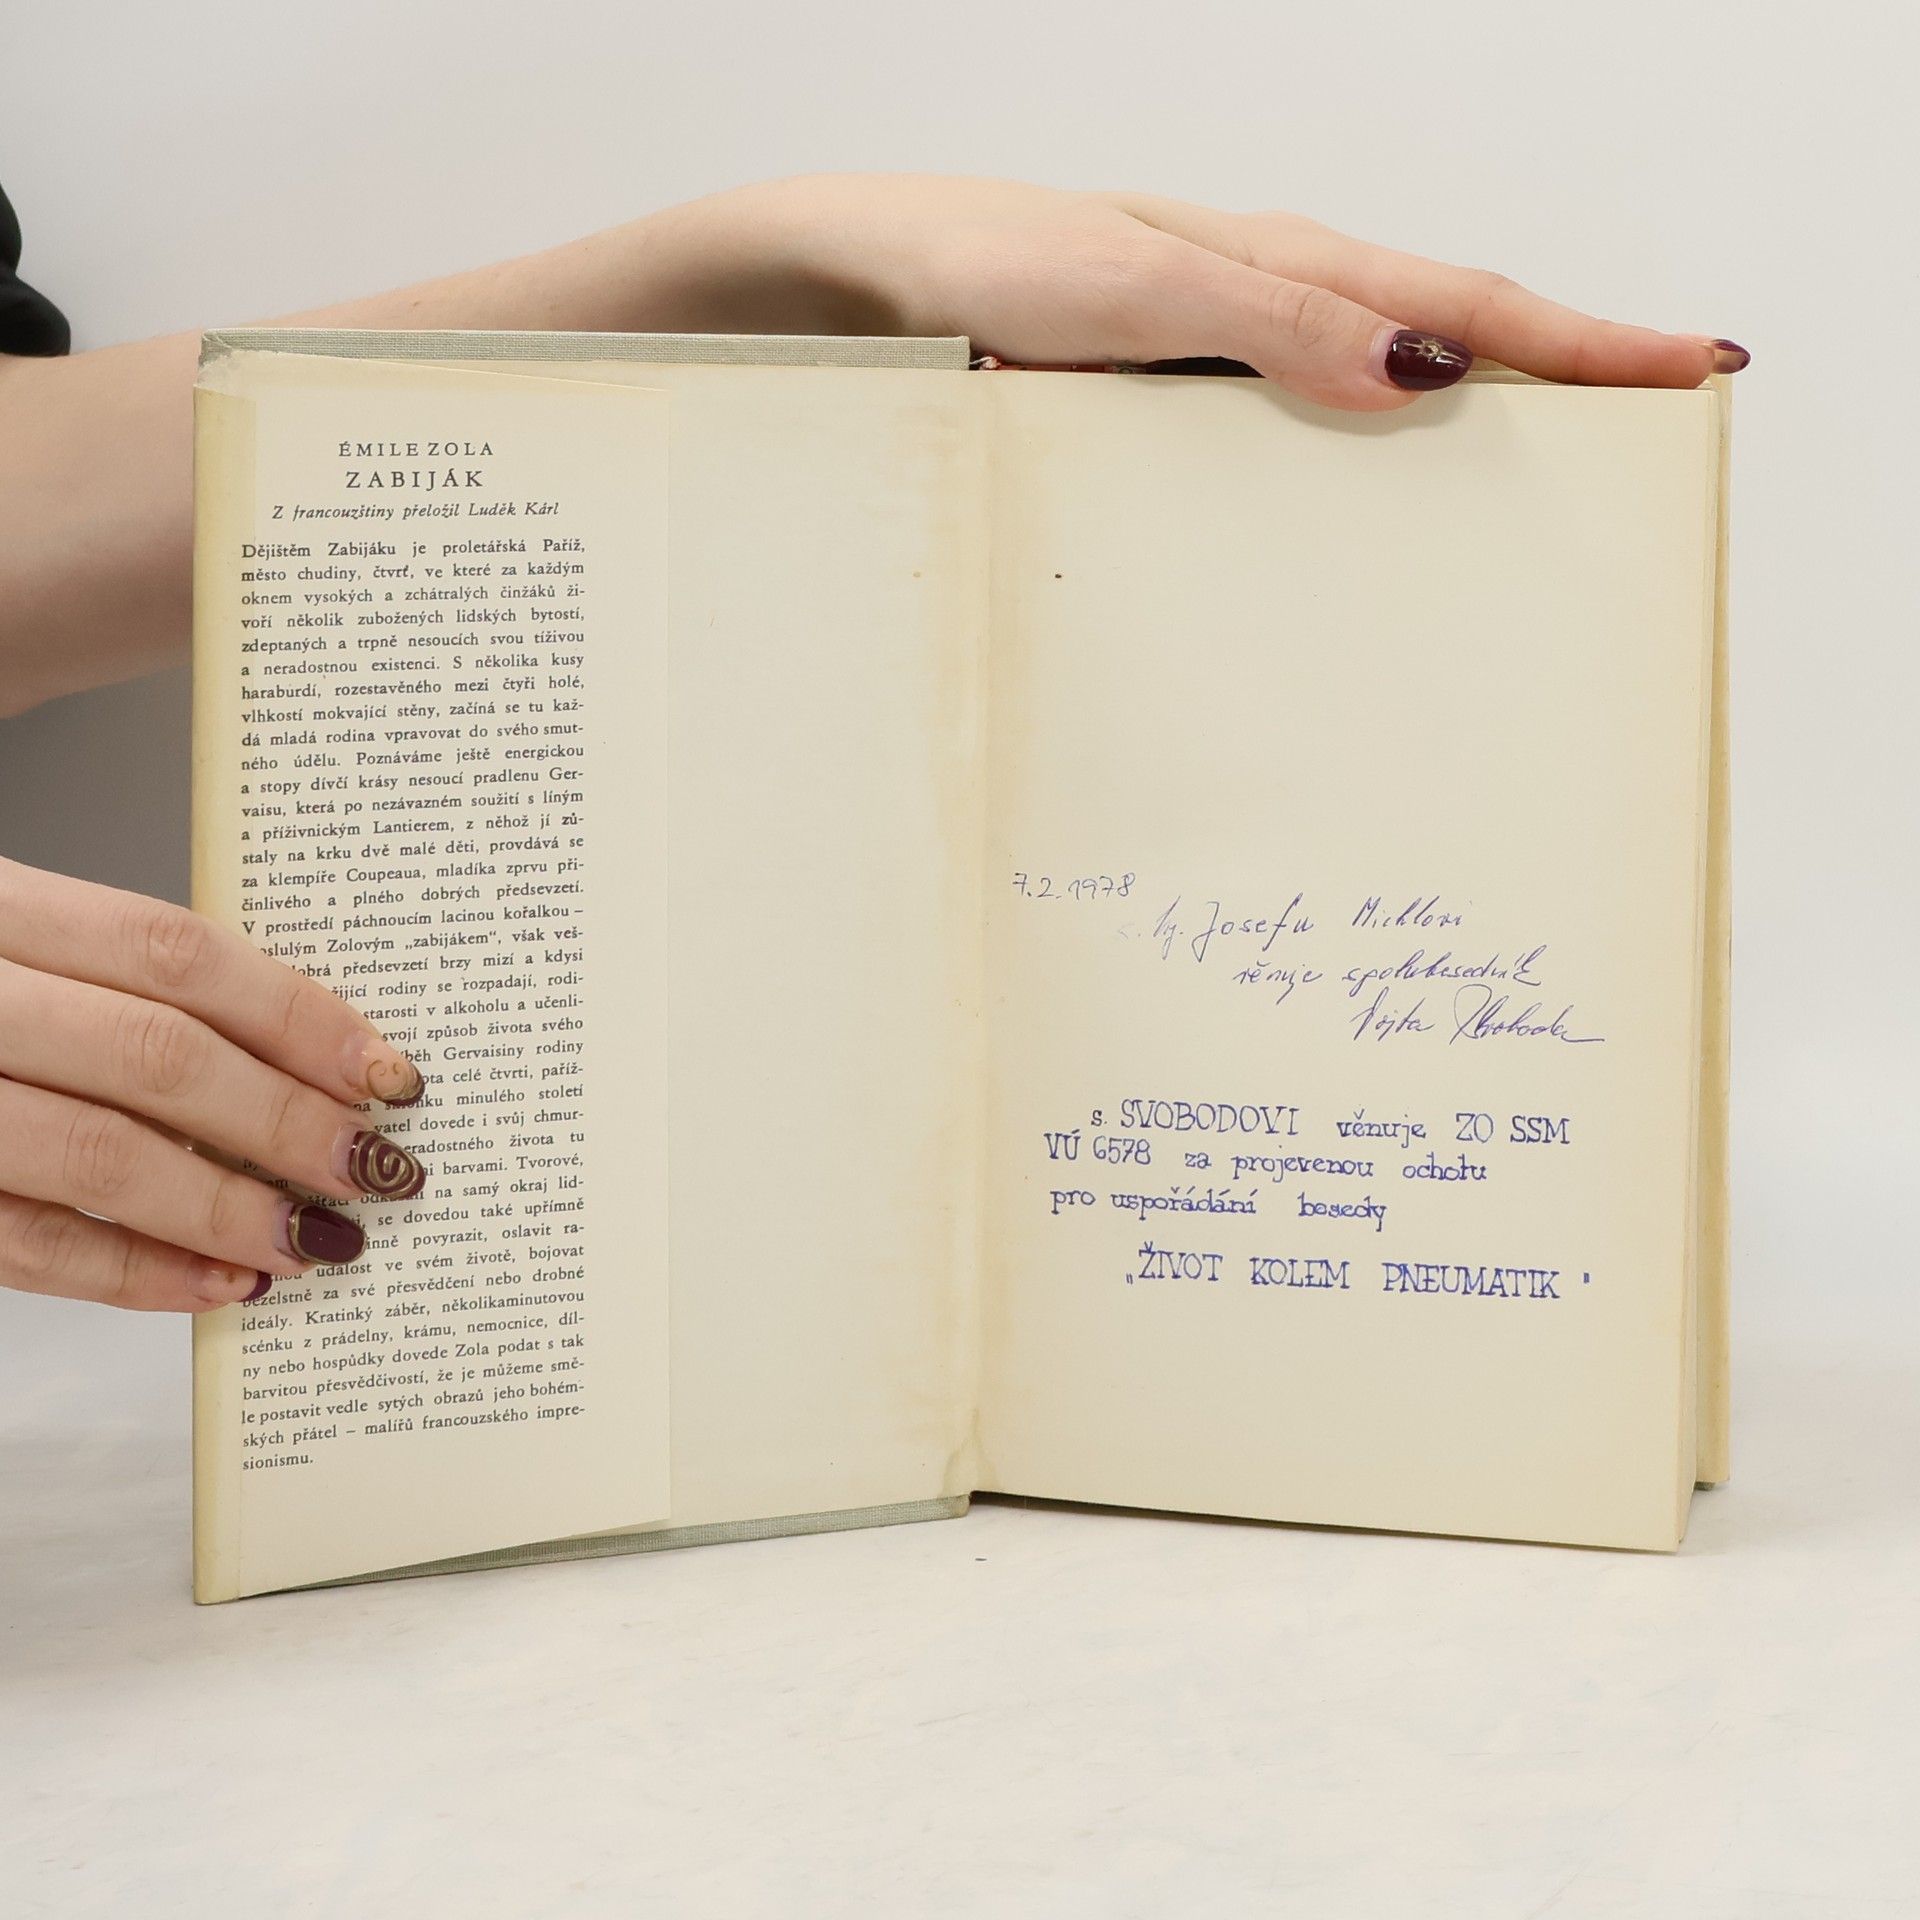 ÉMILE ZOLA
ZABIJÁK
Z francouzštiny přeložil Luděk Kárl
Dějištěm Zabijáku je proletářská Paříž,
město chudiny, čtvrť, ve které za každým
oknem vysokých a zchátralých činžáků ži-
voří několik zubožených lidských bytostí,
zdeptaných a trpně nesoucích svou tíživou
a neradostnou existenci. S několika kusy
haraburdí, rozestavěného mezi čtyři holé,
vlhkostí mokvající stěny, začíná se tu kaž-
dá mladá rodina vpravovat do svého smut-
ného údělu. Poznáváme ještě energickou
a stopy dívčí krásy nesoucí pradlenu Ger-
vaisu, která po nezávazném soužití s líným
a příživnickým Lantierem, z něhož jí zů-
staly na krku dvě malé děti, provdává se
za klempíře Coupeaua, mladíka zprvu při-
činlivého a plného dobrých předsevzetí.
V prostředí páchnoucím lacinou kořalkou –
oslulým Zolovým „zabijákem“, však veš-
obrá předsevzetí brzy mizí a kdysi
žijící rodiny se rozpadají, rodi-
starosti v alkoholu a učenli-
svojí způsob života svého
běh Gervaisiny rodiny
ota celé čtvrti, paříž-
na sklonku minulého století
vatel dovede i svůj chmur-
eradostného života tu
mi barvami. Tvorové,
na samý okraj lid-
se dovedou také upřímně
inně povyrazit, oslavit ra-
událost ve svém životě, bojovat
bezelstně za své přesvědčení nebo drobné
ideály. Kratinký záběr, několikaminutovou
scénku z prádelny, krámu, nemocnice, díl-
ny nebo hospůdky dovede Zola podat s tak
barvitou přesvědčivostí, že je můžeme smě-
le postavit vedle sytých obrazů jeho bohém-
ských přátel – malířů francouzského impre-
sionismu.
7.2.1978
Josefu Michlovi
věnuje spolubesedník
Vojta Svoboda
s. SVOBODOVI věnuje ZO SSM
VÚ 6578 za projevenou ochotu
pro uspořádání besedy
„ŽIVOT KOLEM PNEUMATIK"